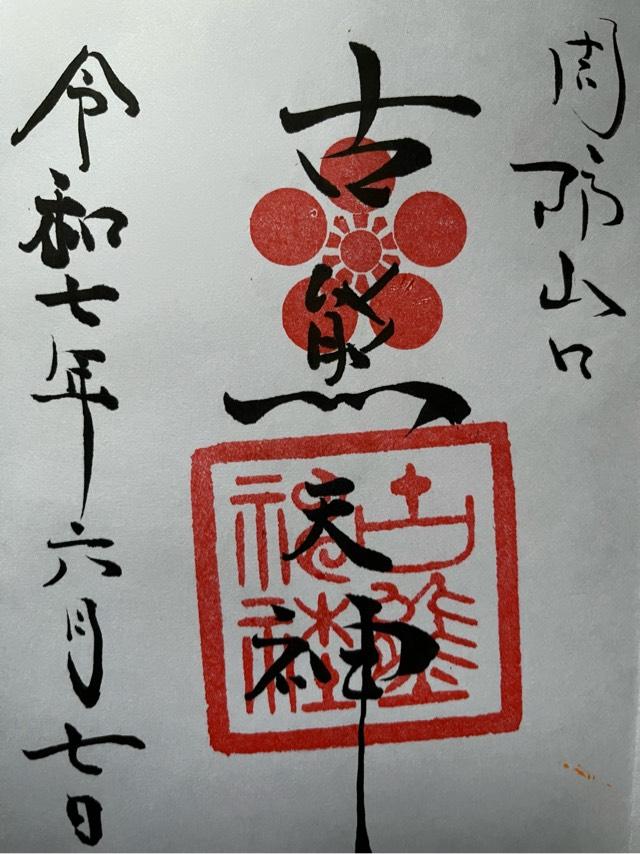 周防山口
古熊天神
古熊神社
令和七年六月七日